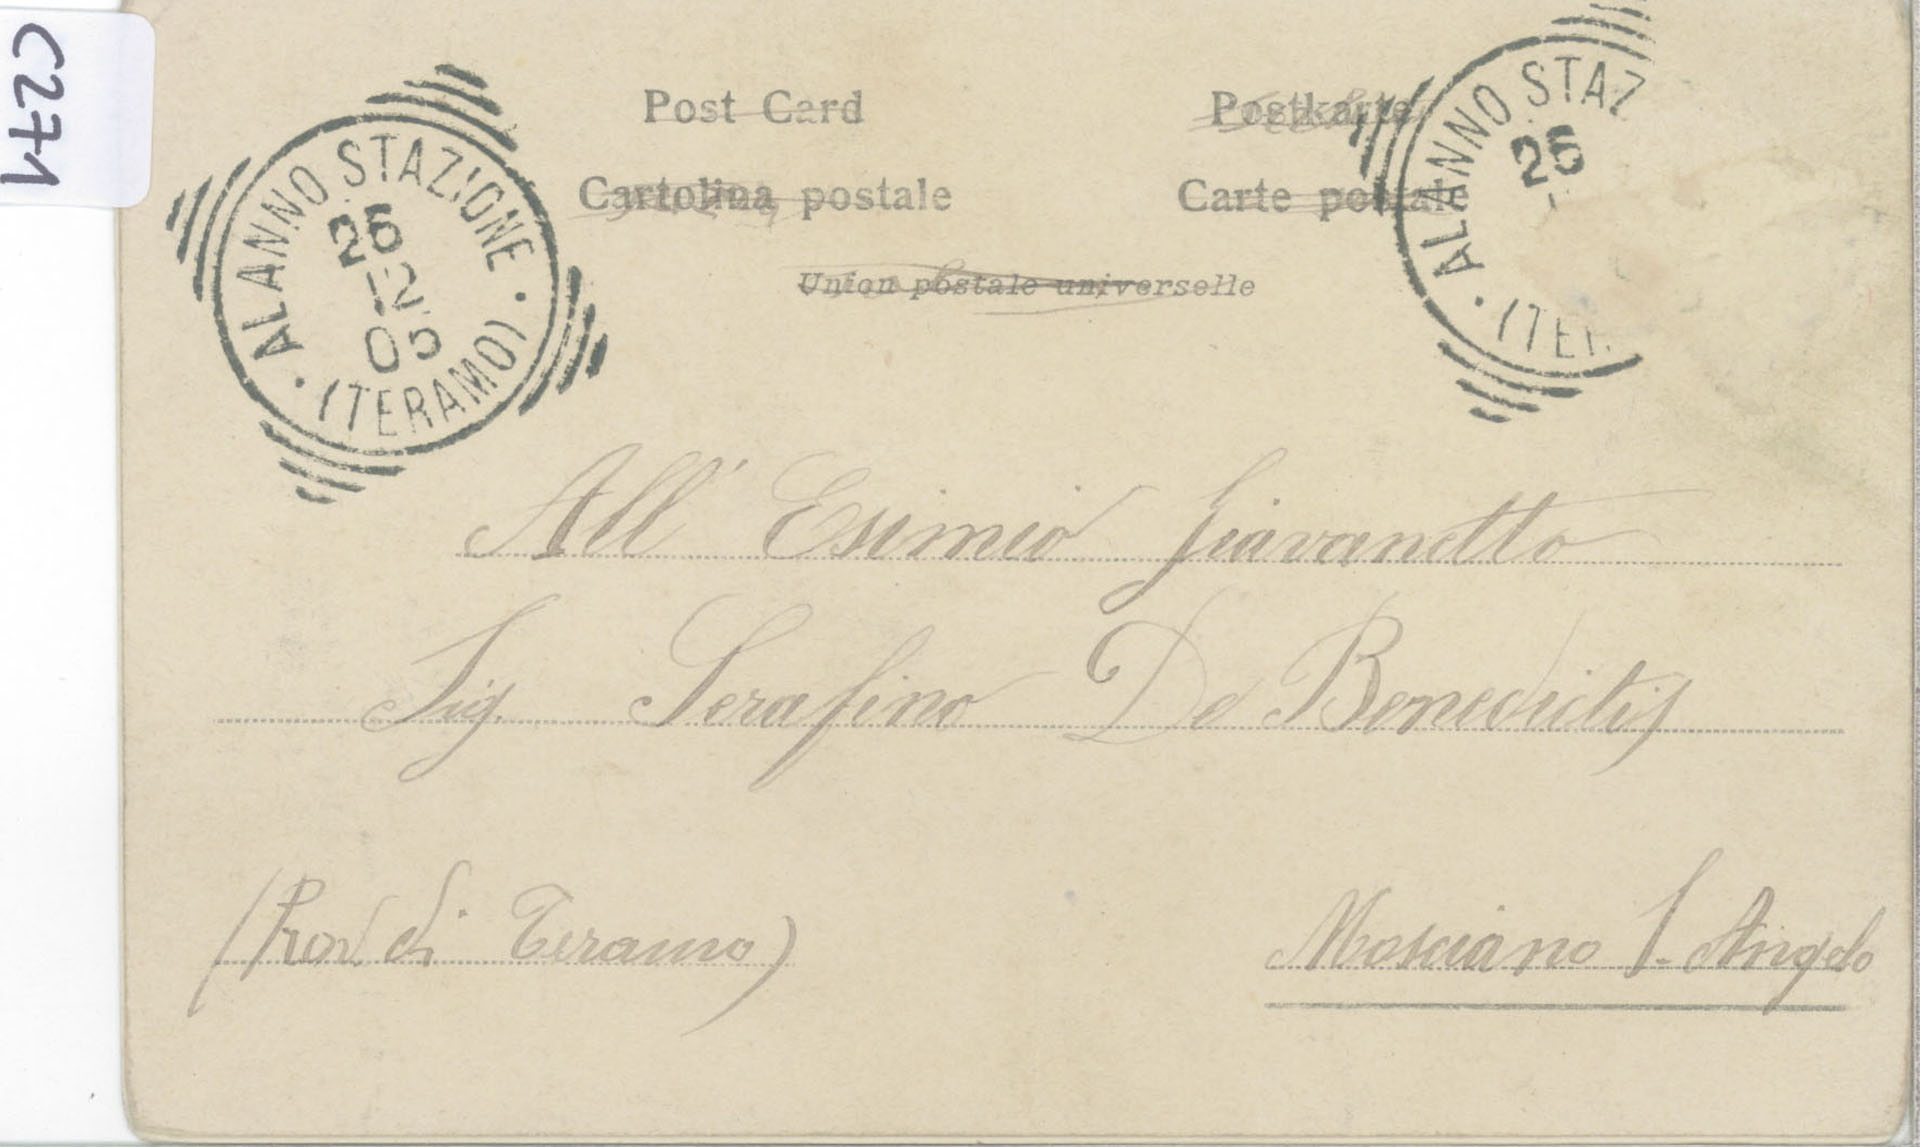 C271
Post Card
Postkarte
Cartolina postale
Carte postale
Union postale universelle
ALANNO STAZIONE
25
12
05
(TERAMO)
ALANNO STAZ
25
(TER
All' Esimio Giovanetto
Sig. Serafino De Benedictis
(Prov. di Teramo)
Mosciano S. Angelo